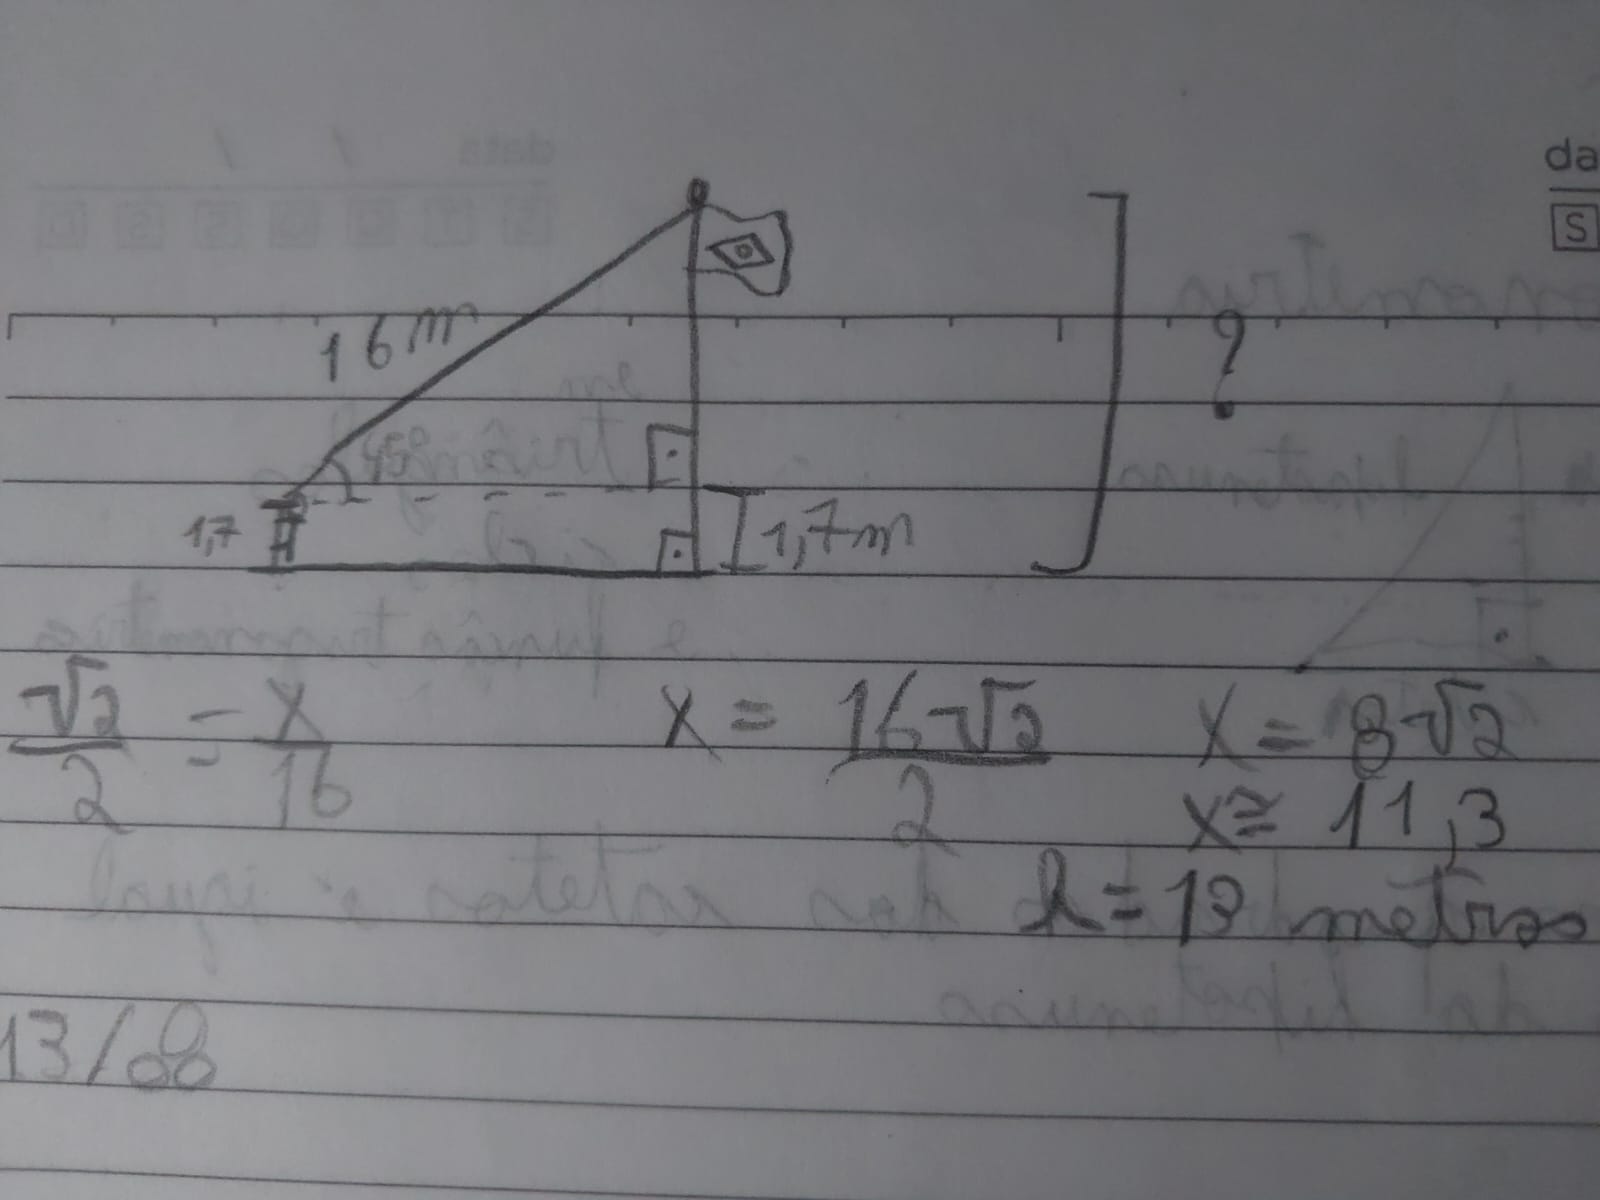 data / /
da
S
16 m
45°
?
1,7
1,7m
√2/2 = x/16 x = 16√2/2 x = 8√2
x ≅ 11,3
h = 13 metros
13/08